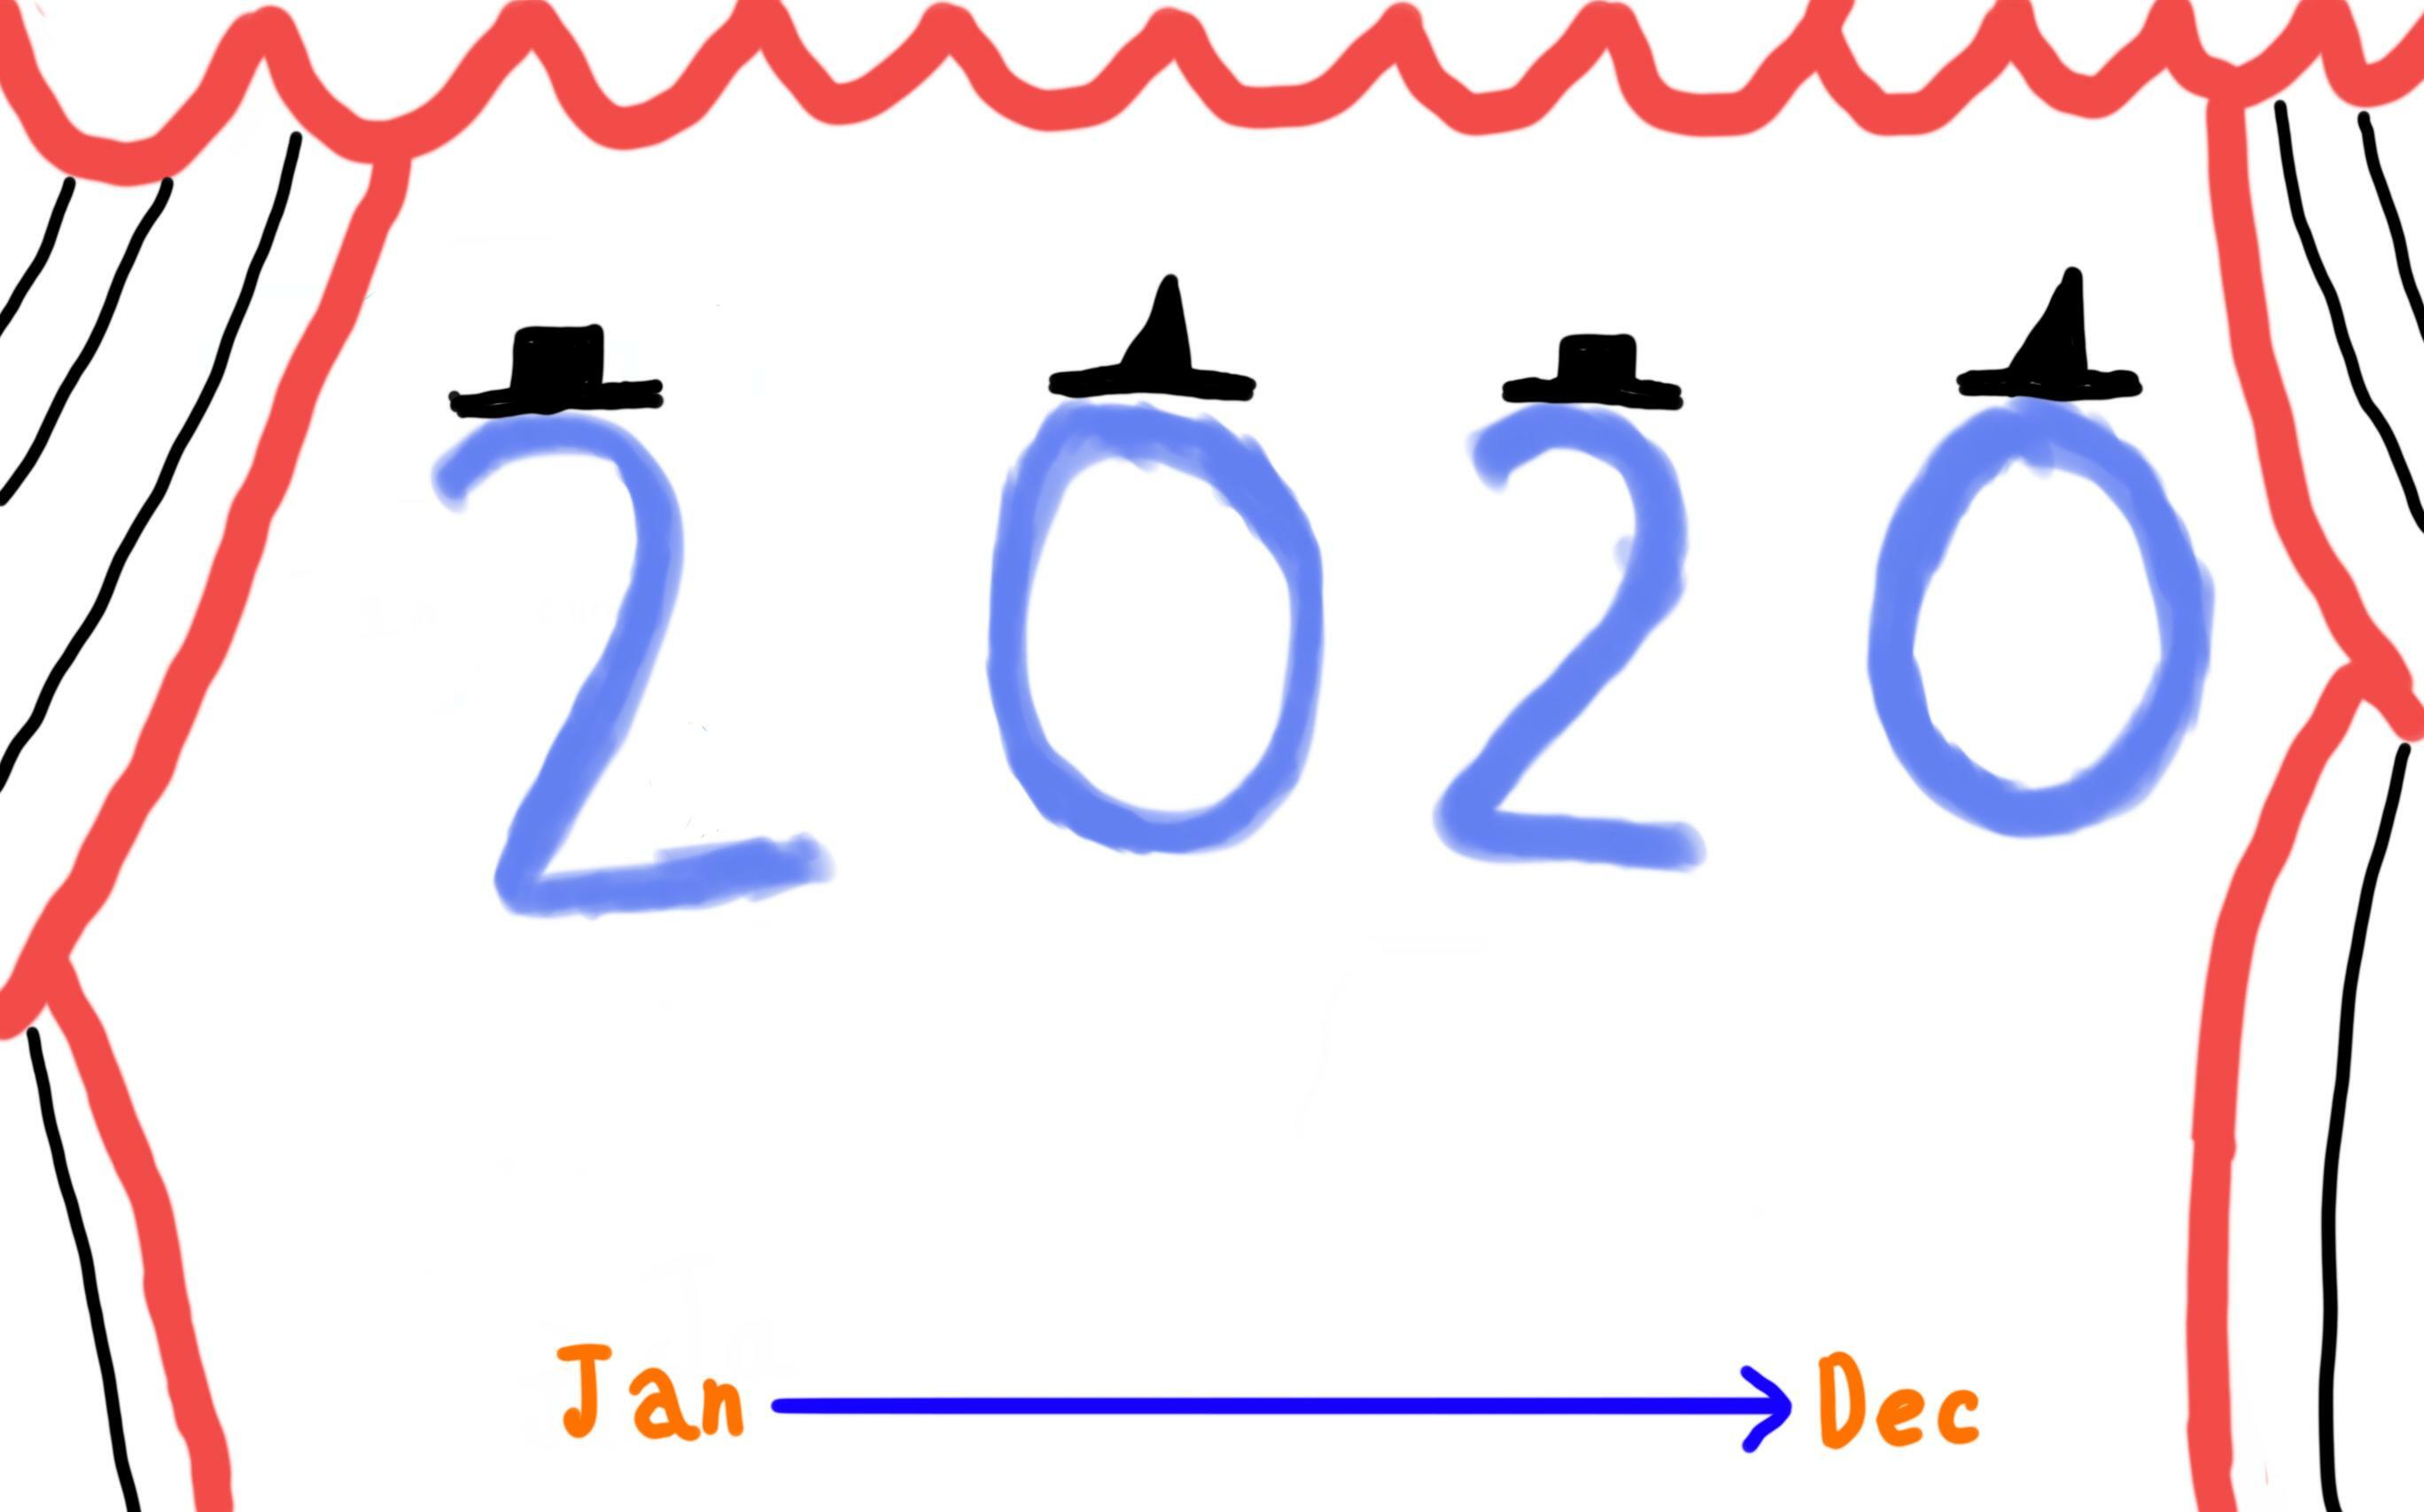 2020
Jan → Dec